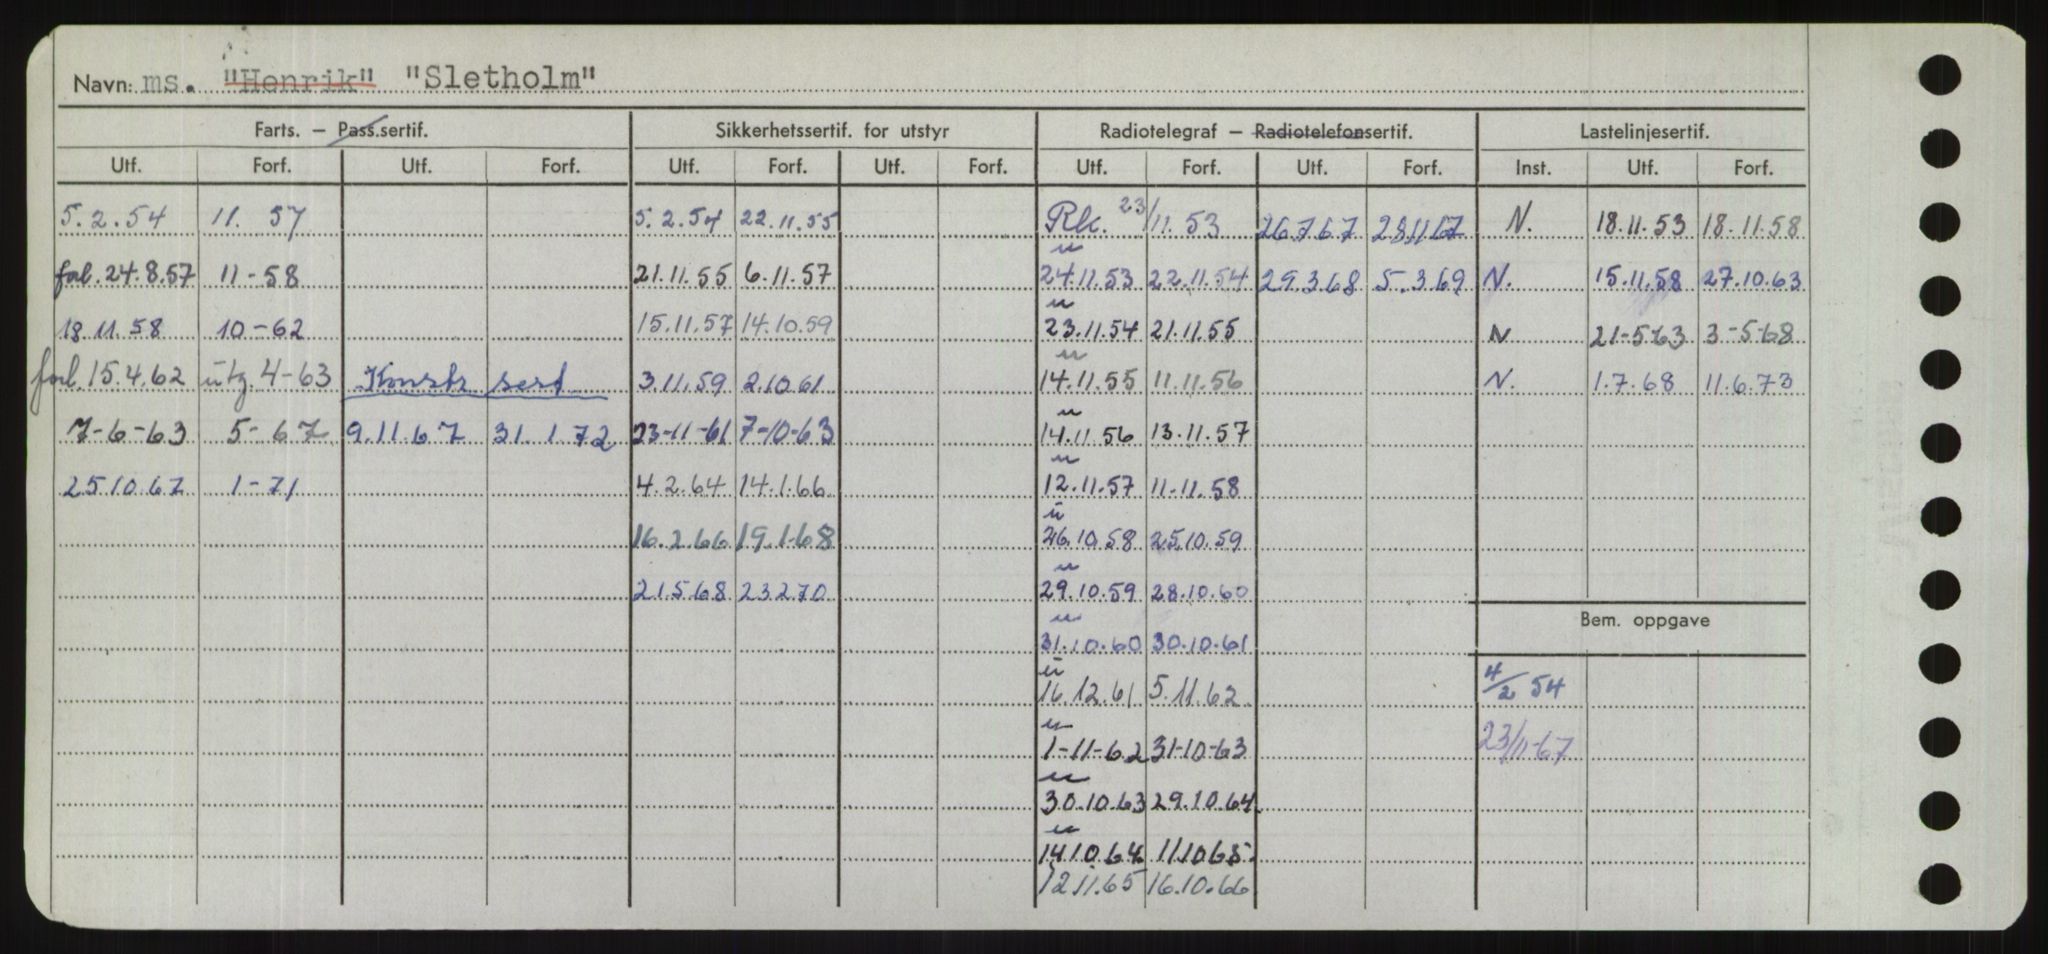 Navn: ms. "Henrik" "Sletholm"
Farts. – Pass.sertif. Sikkerhetssertif. for utstyr Radiotelegraf – Radiotelefonsertif. Lastelinjesertif.
Utf. Forf. Utf. Forf. Utf. Forf. Utf. Forf. Utf. Forf. Utf. Forf. Inst. Utf. Forf.
5.2.54 11. 57 5.2.54 22.11.55 Rk. 23/11.53 26.7.67 28.11.67 N. 18.11.53 18.11.58
fol. 24.8.57 11-58 21.11.55 6.11.57 24.11.53 22.11.54 29.3.68 5.3.69 N. 15.11.58 27.10.63
18.11.58 10-62 15.11.57 14.10.59 23.11.54 21.11.55 N 21-5-63 3-5-68
forl. 15.4.62 utg. 4-63 Konstr sert 3.11.59 2.10.61 14.11.55 11.11.56 N. 1.7.68 11.6.73
7-6-63 5-67 9.11.67 31.1.72 23-11-61 7-10-63 14.11.56 13.11.57
25.10.67 1-71 4.2.64 14.1.66 12.11.57 11.11.58
16.2.66 19.1.68 26.10.58 25.10.59
21.5.68 23.2.70 29.10.59 28.10.60
Bem. oppgave
31.10.60 30.10.61
16.12.61 5.11.62 4/2 54
1-11-62 31-10-63 23/11-67
30.10.63 29.10.64
14.10.64 11.10.65
12.11.65 16.10.66